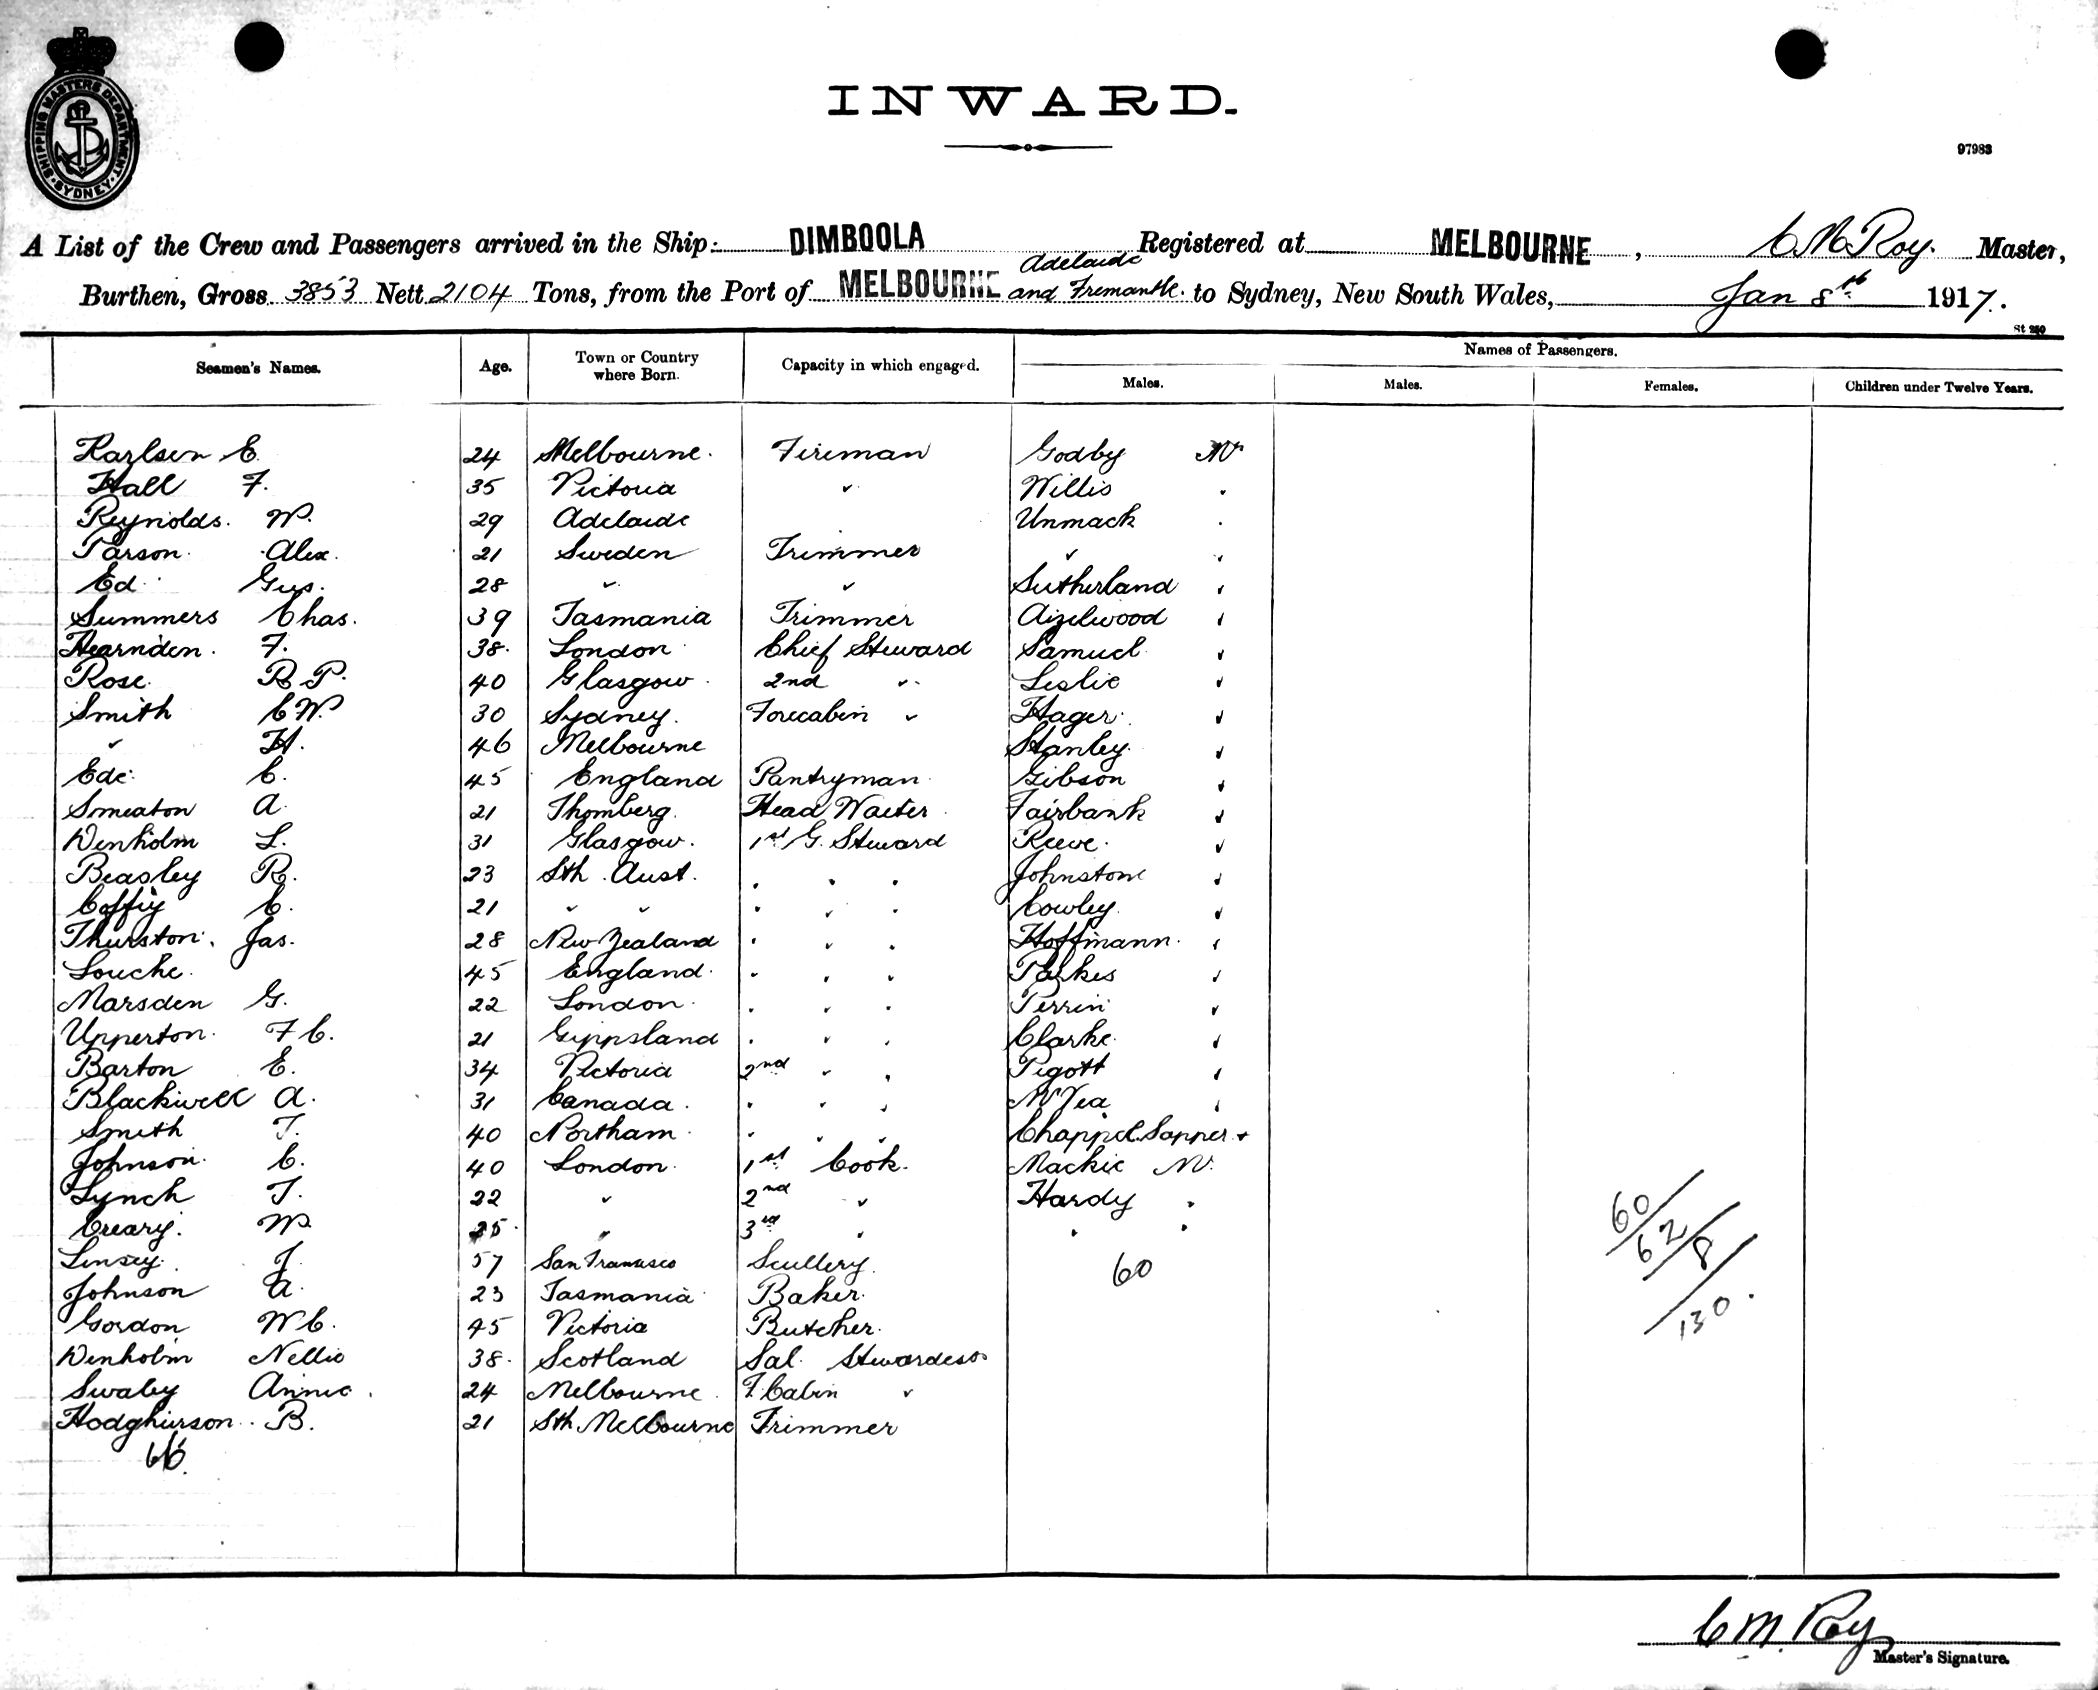 SHIPPING MASTERS DEPARTMENT
SYDNEY
INWARD.
97983
A List of the Crew and Passengers arrived in the Ship: DIMBOOLA Registered at MELBOURNE, C M Roy. Master,
Adelaide
Burthen, Gross 3853 Nett 2104 Tons, from the Port of MELBOURNE and Fremantle. to Sydney, New South Wales, Jan 8th 1917.
St 250
Seamen's Names. Age. Town or Country where Born. Capacity in which engaged. Names of Passengers.
Males. Males. Females. Children under Twelve Years.
Karlsen E. 24 Melbourne. Fireman Godby Mr
Hall F. 35 Victoria " Willis "
Reynolds. W. 29 Adelaide Unmack "
Parson. Alex. 21 Sweden Trimmer " "
Ed Gus. 28 " " Sutherland "
Summers Chas. 39 Tasmania Trimmer Aizelwood "
Hearnden. F. 38. London Chief Steward Samuel "
Rose. R P. 40 Glasgow. 2nd " Leslie "
Smith C W. 30 Sydney. Forecabin " Hager. "
" H. 46 Melbourne Stanley. "
Ede. C. 45 England Pantryman Gibson "
Smeaton A. 21 Thomberg. Head Waiter Fairbank "
Denholm L. 31 Glasgow. 1st G. Steward Reeve. "
Beasley R. 23 Sth. Aust. " " " Johnstone "
Coffey C. 21 " " " " " Cowley. "
Thurston. Jas. 28 New Zealand " " " Hoffmann. "
Louche. 45 England. " " " Parkes "
Marsden G. 22 London. " " " Perrin "
Upperton. F C. 21 Gippsland " " " Clarke. "
Barton E. 34 Victoria 2nd " " Pigott "
Blackwell A. 31 Canada. " " " McVea "
Smith T. 40 Northam. " " " Chappel. Sapper. +
Johnson. C. 40 London. 1st Cook. Mackie Mr.
Lynch T. 22 " 2nd " Hardy "
Creary. W. 25. " 3rd " " "
Linsey. J. 57 San Francisco Scullery.
60
Johnson A. 23 Tasmania Baker.
Gordon W C. 45 Victoria Butcher.
Denholm Nellie 38. Scotland Sal. Stewardess
Swaby Annie. 24 Melbourne. F. Cabin "
Hodghurson. B. 21 Sth Melbourne Trimmer
60
62
8
130.
C M. Roy
Master's Signature.